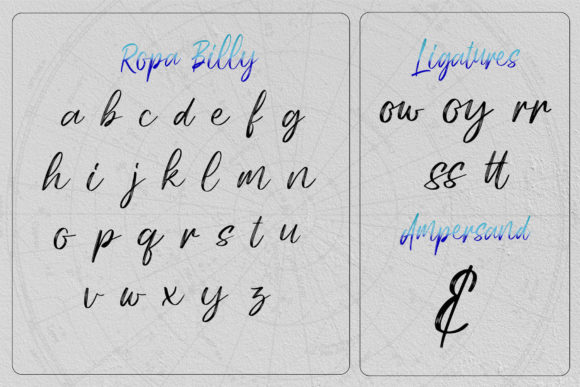 Ropa Billy
a b c d e f g
h i j k l m n
o p q r s t u
v w x y z
Ligatures
ow oy rr
ss tt
Ampersand
&